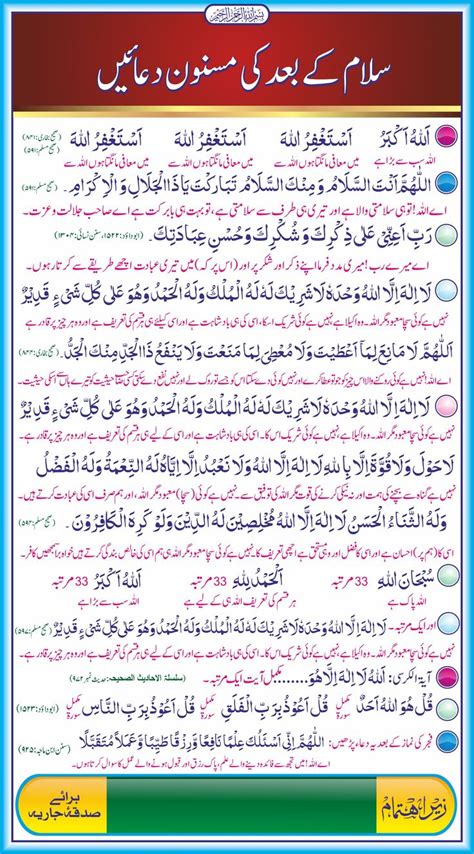 بسم الله الرحمن الرحيم
سلام کے بعد کی مسنون دعائیں
اَللهُ اَكْبَرُ اَسْتَغْفِرُ اللهَ اَسْتَغْفِرُ اللهَ اَسْتَغْفِرُ اللهَ (صحیح بخاری: ۸۴۲) (صحیح مسلم: ۵۹۱)
اللہ سب سے بڑا ہے میں معافی مانگتا ہوں اللہ سے میں معافی مانگتا ہوں اللہ سے میں معافی مانگتا ہوں اللہ سے
اَللّٰهُمَّ اَنْتَ السَّلَامُ وَمِنْكَ السَّلَامُ تَبَارَكْتَ يَا ذَا الْجَلَالِ وَالْاِكْرَامِ.
اے اللہ! تو ہی سلامتی والا ہے اور تیری ہی طرف سے سلامتی ہے، تو بہت ہی بابرکت ہے اے صاحب جلالت و عزت۔
رَبِّ اَعِنِّيْ عَلٰى ذِكْرِكَ وَشُكْرِكَ وَحُسْنِ عِبَادَتِكَ. (ابوداؤد: ۱۵۲۲، سنن نسائی: ۱۳۰۴)
اے میرے رب! میری مدد فرما اپنے ذکر اور شکر پر اور (اس پر کہ) میں تیری عبادت اچھے طریقے سے کرتا رہوں۔
لَا اِلٰهَ اِلَّا اللهُ وَحْدَهٗ لَا شَرِيْكَ لَهٗ لَهُ الْمُلْكُ وَلَهُ الْحَمْدُ وَهُوَ عَلٰى كُلِّ شَيْءٍ قَدِيْرٌ
نہیں ہے کوئی سچا معبود مگر اللہ۔ وہ اکیلا ہے نہیں ہے کوئی شریک اسکا، اسی کی ہی بادشاہت ہے اور اسی کے لیے ہی ہر قسم کی تعریف ہے اور وہ ہر چیز پر قادر ہے
اَللّٰهُمَّ لَا مَانِعَ لِمَا اَعْطَيْتَ وَلَا مُعْطِيَ لِمَا مَنَعْتَ وَلَا يَنْفَعُ ذَا الْجَدِّ مِنْكَ الْجَدُّ. (صحیح بخاری: ۸۴۴)
اے اللہ! نہیں ہے کوئی روکنے والا اس چیز کو جو تو عطا کرے اور نہیں ہے کوئی دے سکتا اس کو جسے تو روک لے اور نہیں نفع دے سکتی کسی حیثیت والے کو تیرے ہاں اسکی حیثیت۔
لَا اِلٰهَ اِلَّا اللهُ وَحْدَهٗ لَا شَرِيْكَ لَهٗ لَهُ الْمُلْكُ وَلَهُ الْحَمْدُ وَهُوَ عَلٰى كُلِّ شَيْءٍ قَدِيْرٌ
نہیں ہے کوئی سچا معبود مگر اللہ۔ وہ اکیلا ہے نہیں ہے کوئی شریک اس کا، اسی کی ہی بادشاہت ہے اور اسی کے لیے ہی ہر قسم کی تعریف ہے اور وہ ہر چیز پر قادر ہے
لَاحَوْلَ وَلَا قُوَّةَ اِلَّا بِاللهِ لَا اِلٰهَ اِلَّا اللهُ وَلَا نَعْبُدُ اِلَّا اِيَّاهُ لَهُ النِّعْمَةُ وَلَهُ الْفَضْلُ
نہیں ہے کوئی گناہ سے بچنے کی ہمت اور نہ نیکی کرنے کی قوت مگر اللہ کی توفیق سے، نہیں ہے کوئی (سچا) معبود مگر اللہ، اور ہم صرف اسی کی عبادت کرتے ہیں،
وَلَهُ الثَّنَاءُ الْحَسَنُ لَا اِلٰهَ اِلَّا اللهُ مُخْلِصِيْنَ لَهُ الدِّيْنَ وَلَوْ كَرِهَ الْكَافِرُوْنَ. (صحیح مسلم: ۵۹۴)
اسی کا (ہم پر) احسان ہے اور اسی کا فضل اور وہی مستحق ہے اچھی تعریف کا، نہیں ہے کوئی سچا معبود مگر اللہ ہی ہم اسی کی خالص بندگی کرتے ہیں خواہ برا جانیں کافر۔
سُبْحَانَ اللهِ 33 مرتبہ اَلْحَمْدُ لِلهِ 33 مرتبہ اَللهُ اَكْبَرُ 33 مرتبہ
اللہ پاک ہے ہر قسم کی تعریف اللہ ہی کی ہے اللہ سب سے بڑا ہے
اور ایک مرتبہ۔ لَا اِلٰهَ اِلَّا اللهُ وَحْدَهٗ لَا شَرِيْكَ لَهٗ لَهُ الْمُلْكُ وَلَهُ الْحَمْدُ وَهُوَ عَلٰى كُلِّ شَيْءٍ قَدِيْرٌ (صحیح مسلم: ۵۹۷)
نہیں ہے کوئی سچا معبود مگر اللہ۔ وہ اکیلا ہے نہیں ہے کوئی شریک اس کا، اسی کی ہی بادشاہت ہے اور اسی کے لیے ہی ہر قسم کی تعریف ہے اور وہ ہر چیز پر قادر ہے۔
آیۃ الکرسی: اَللهُ لَا اِلٰهَ اِلَّا هُوَ...... مکمل آیت ایک مرتبہ۔ (سلسلة الاحادیث الصحیحه: حدیث نمبر ۹۷۲)
قُلْ هُوَ اللهُ اَحَدٌ مکمل سورۃ قُلْ اَعُوْذُ بِرَبِّ الْفَلَقِ مکمل سورۃ قُلْ اَعُوْذُ بِرَبِّ النَّاسِ مکمل سورۃ (ابوداؤد: ۱۵۲۳)
فجر کی نماز کے بعد یہ دعاء پڑھیں: اَللّٰهُمَّ اِنِّيْ اَسْئَلُكَ عِلْمًا نَافِعًا وَّرِزْقًا طَيِّبًا وَّعَمَلًا مُتَقَبَّلًا (سنن ابن ماجہ: ۹۲۵)
اے اللہ! میں تجھ سے فائدہ دینے والے علم، پاک رزق اور قبول ہونے والے عمل کا سوال کرتا ہوں۔
زیر اہتمام
برائے
صدقۂ جاریہ